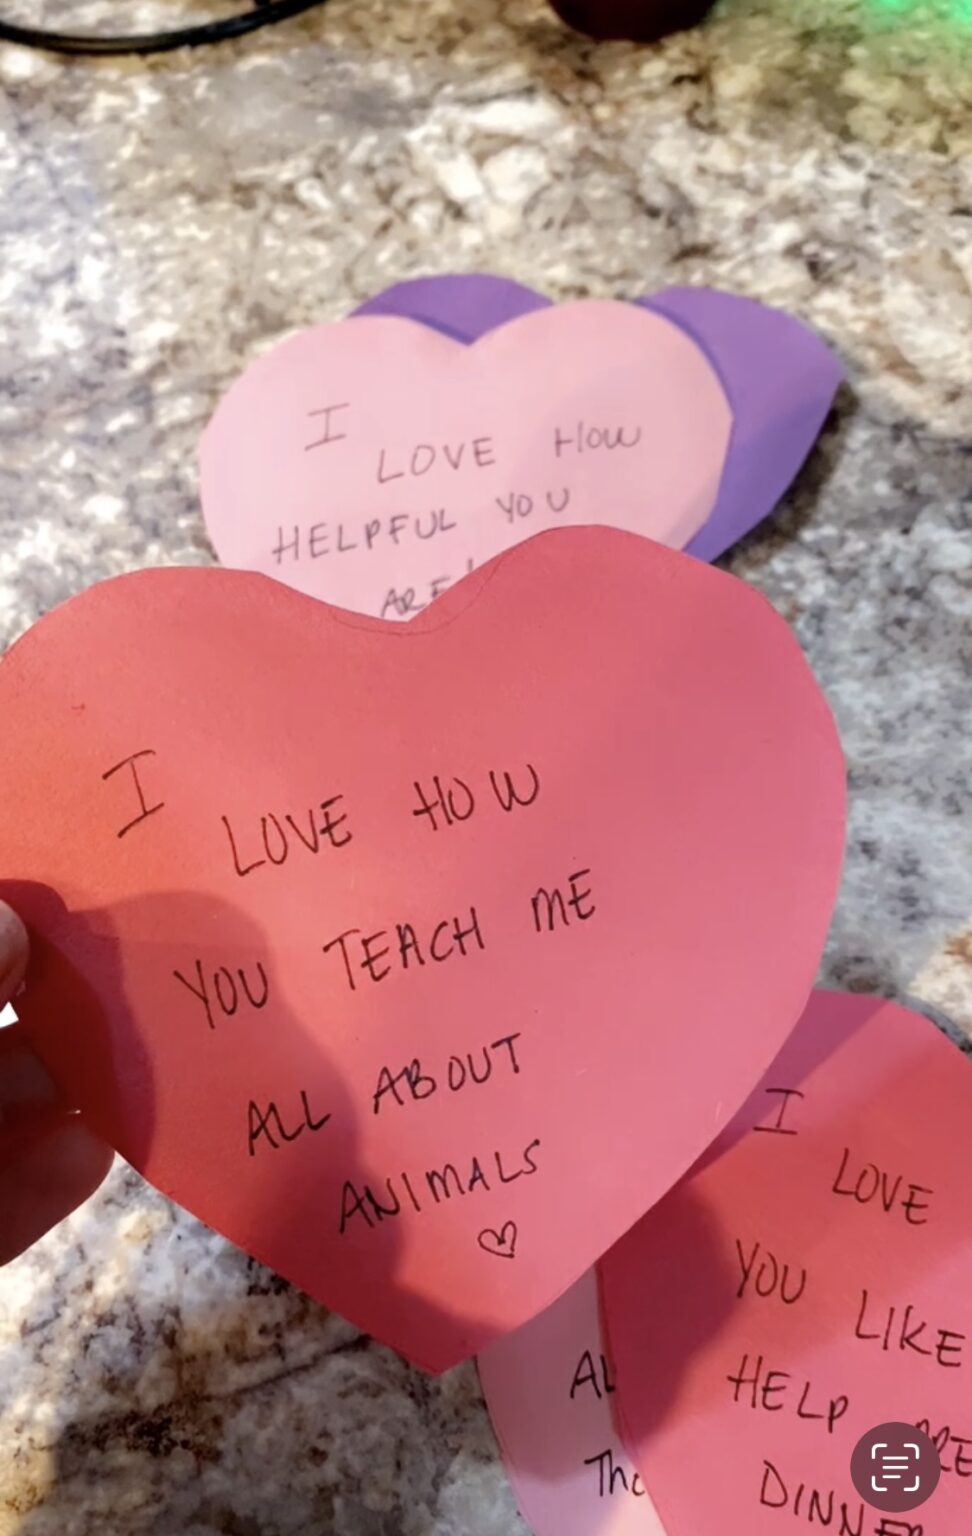 I
LOVE HOW
HELPFUL YOU
ARE!
I
LOVE HOW
YOU TEACH ME
ALL ABOUT
ANIMALS
I
LOVE
YOU LIKE
HELP
DINNER